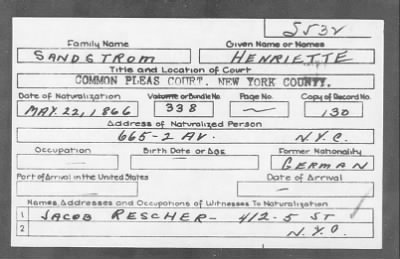 S532
Family Name Given Name or Names
SANDSTROM HENRIETTE
Title and Location of Court
COMMON PLEAS COURT, NEW YORK COUNTY.
Date of Naturalization Volume or Bundle No. Page No. Copy of Record No.
MAY 22, 1866 338 — 130
Address of Naturalized Person
665-2 AV. N.Y.C.
Occupation Birth Date or Age Former Nationality
— — GERMAN
Port of Arrival in the United States Date of Arrival
— —
Names, Addresses and Occupations of Witnesses To Naturalization
1 JACOB RESCHER - 412-5 ST
2 N.Y.C.